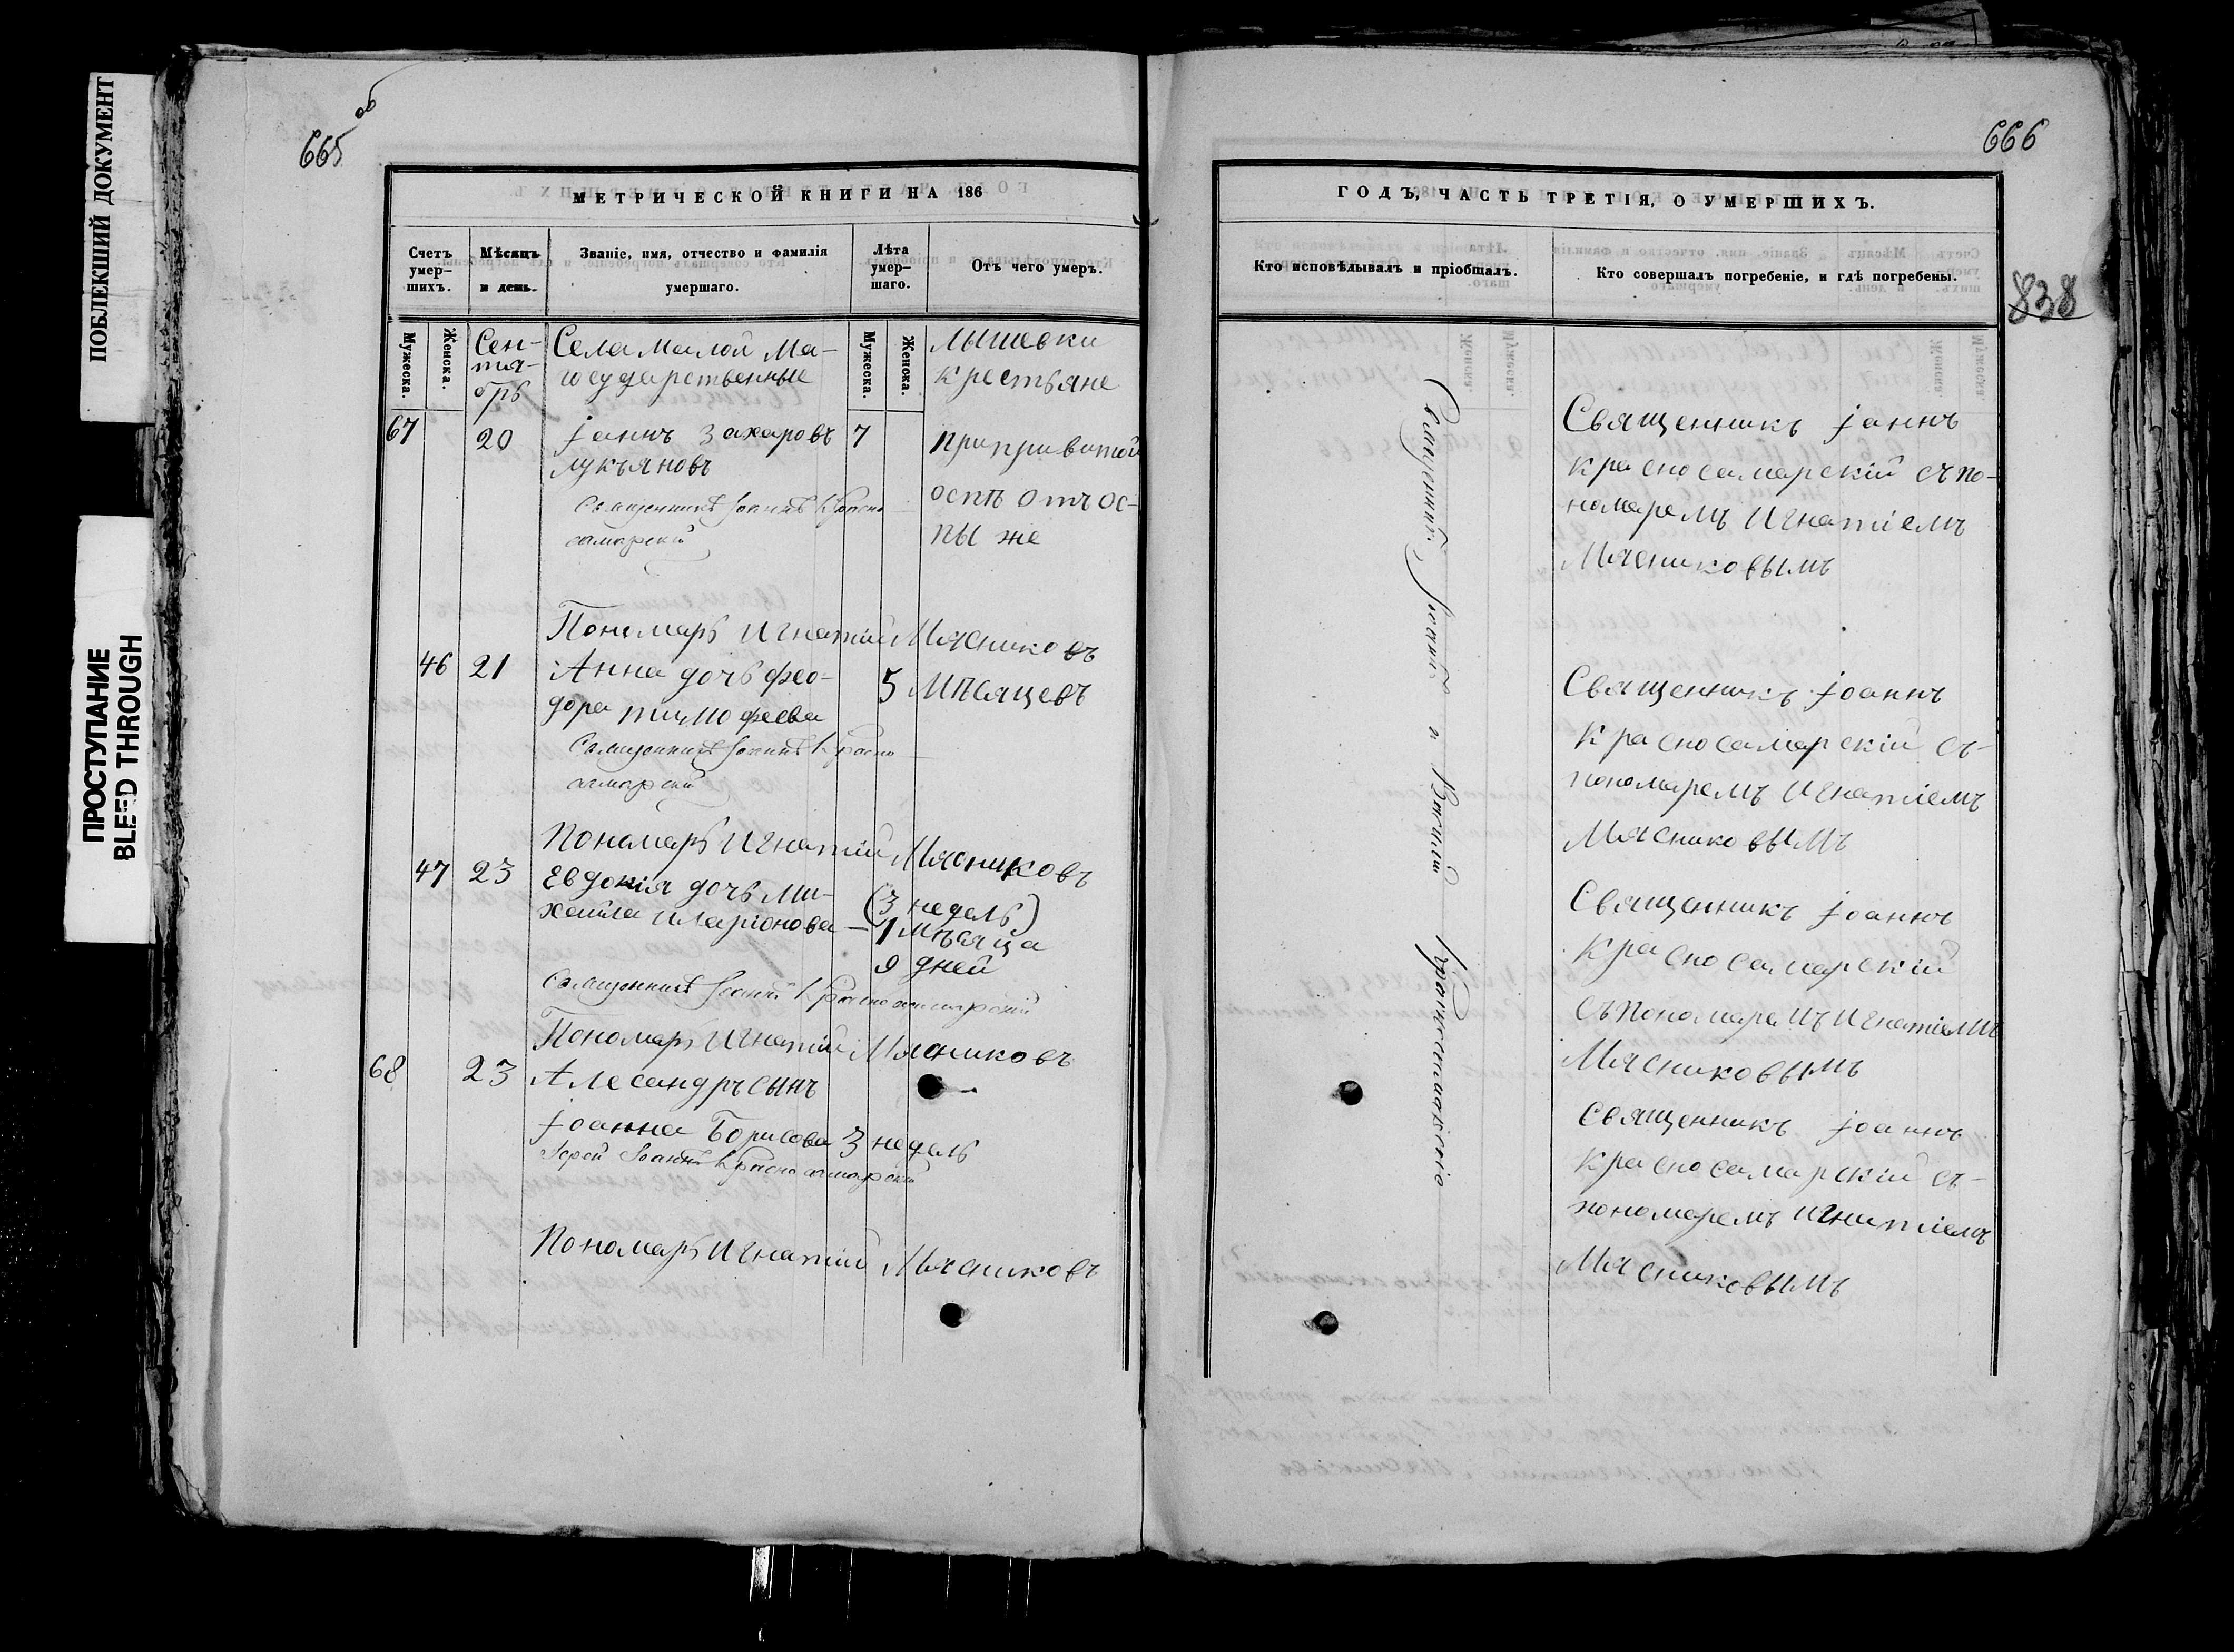 ПОБЛЕКШИЙ ДОКУМЕНТ
ПРОСТУПАНИЕ
BLEED THROUGH
665 об
МЕТРИЧЕСКОЙ КНИГИ НА 186
Счетъ умер- шихъ.
Мѣсяцъ и день.
Званіе, имя, отчество и фамилія умершаго.
Лѣта умер- шаго.
Отъ чего умеръ.
Мужеска.
Женска.
Сен-
тя-
брь
Села Малой Ма-
лышевки
государственные
крестьяне
Мужеска.
Женска.
67 20 Іоаннъ Захаровъ 7 при привитой
Лукъяновъ
оспѣ отъ ос-
пы же
Священникъ Іоаннъ Красно
самарскій
Пономарь Игнатій Мясниковъ
46 21 Анна дочь Фео- 5 Мѣсяцевъ
дора Тимофеева
Священникъ Іоаннъ Красно
самарскій
Пономарь Игнатій Мясниковъ
47 23 Евдокія дочь Ми- (3 недель)
хайла Иларіонова — 1 мѣсяца
9 дней
Священникъ Іоаннъ Красносамарскій
Пономарь Игнатій Мясниковъ
68 23 Алесандръ сынъ
Іоанна Борисова 3 недель
Іерей Іоаннъ Красносамарскій
Пономарь Игнатій Мясниковъ
666
838
ГОДЪ, ЧАСТЬ ТРЕТІЯ, О УМЕРШИХЪ.
Кто исповѣдывалъ и пріобщалъ.
Кто совершалъ погребеніе, и гдѣ погребены.
Священникъ Іоаннъ Красносамарскій
Священникъ Іоаннъ
Красносамарскій съ по-
номаремъ Игнатіемъ
Мясниковымъ
Священникъ Іоаннъ
Красносамарскій съ-
пономаремъ Игнатіемъ
Мясниковымъ
Священникъ Іоаннъ
Красносамарскій
съ пономаремъ Игнатіемъ
Мясниковымъ
Священникъ Іоаннъ
Красносамарскій съ-
пономаремъ Игнатіемъ
Мясниковымъ